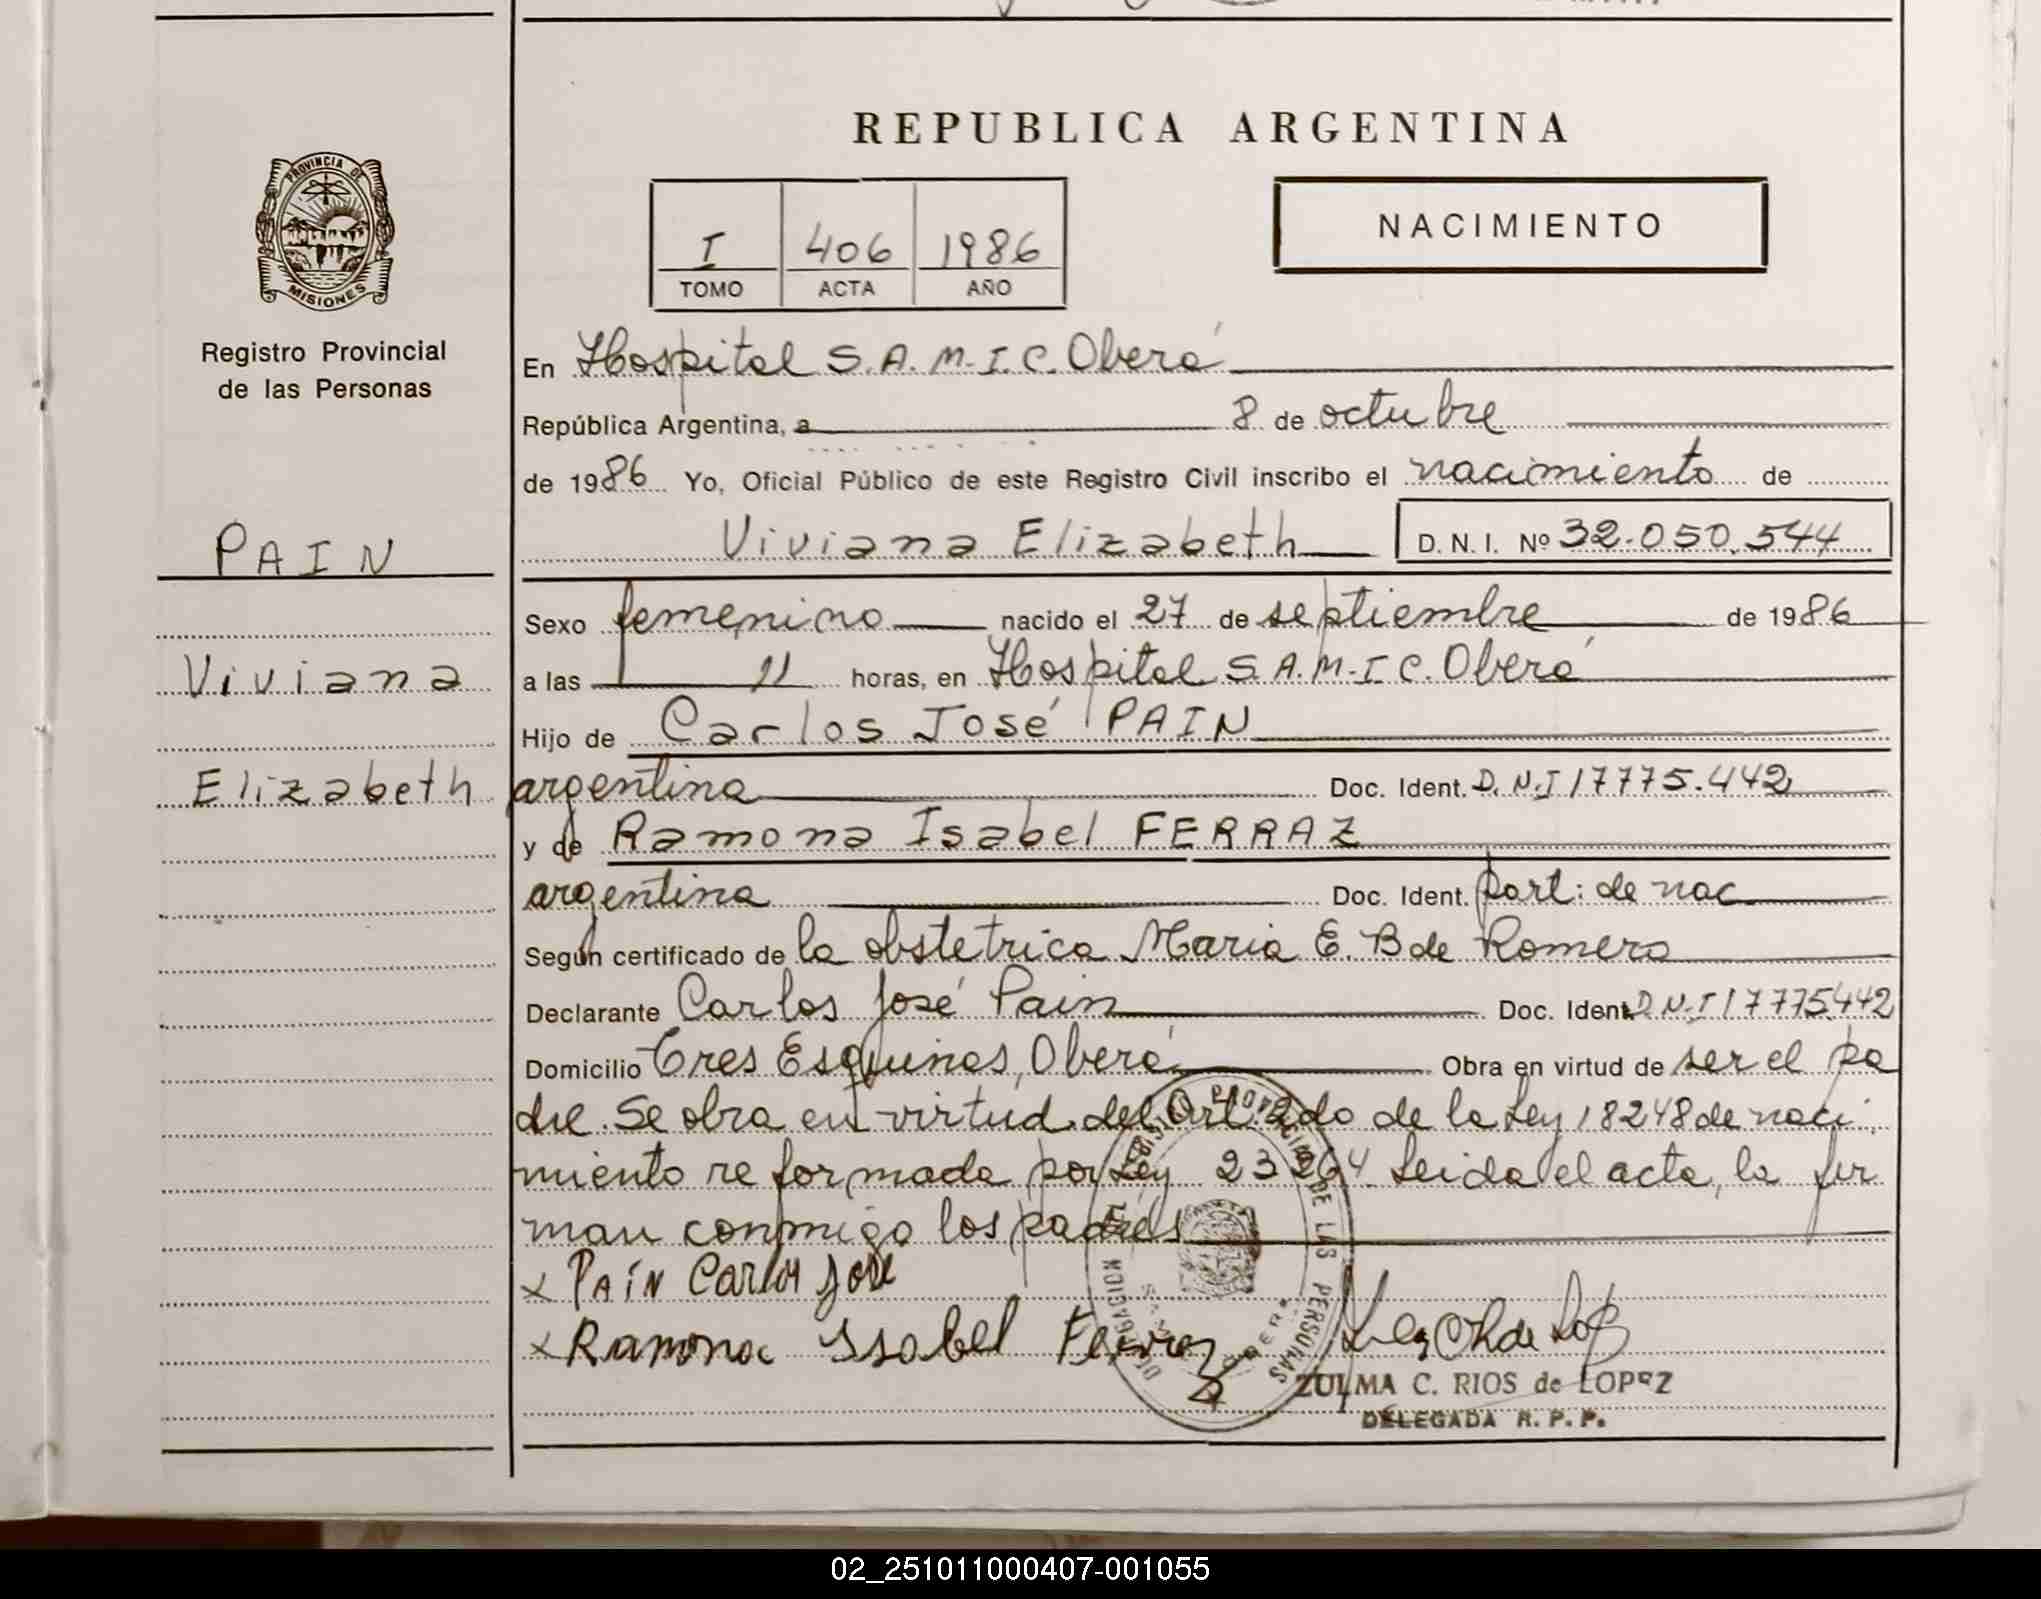 REPUBLICA ARGENTINA
PROVINCIA DE
MISIONES
I 406 1986
TOMO ACTA AÑO
NACIMIENTO
Registro Provincial
de las Personas
PAIN
Viviana
Elizabeth
En Hospital S.A.M.I.C. Oberá
República Argentina, a 8 de octubre
de 1986 Yo, Oficial Público de este Registro Civil inscribo el nacimiento de
Viviana Elizabeth D.N.I. Nº 32.050.544
Sexo femenino nacido el 27 de septiembre de 1986
a las 11 horas, en Hospital S.A.M.I.C. Oberá
Hijo de Carlos José PAIN
argentina Doc. Ident. D.N.I 17775.442
y de Ramona Isabel FERRAZ
argentina Doc. Ident. part: de nac
Según certificado de la obstetrica Maria E. B de Romero
Declarante Carlos José Pain Doc. Ident D.N.I 17775.442
Domicilio Tres Esquinas, Oberá Obra en virtud de ser el pa
dre. Se obra en virtud del Art. 2do de la Ley 18248 de naci
miento reformada por Ley 23264 Leida el acta, la fir
man conmigo los padres
x PAIN Carlos José
x Ramona Isabel Ferraz
ZULMA C. RIOS de LOPEZ
DELEGADA R. P. P.
02_251011000407-001055